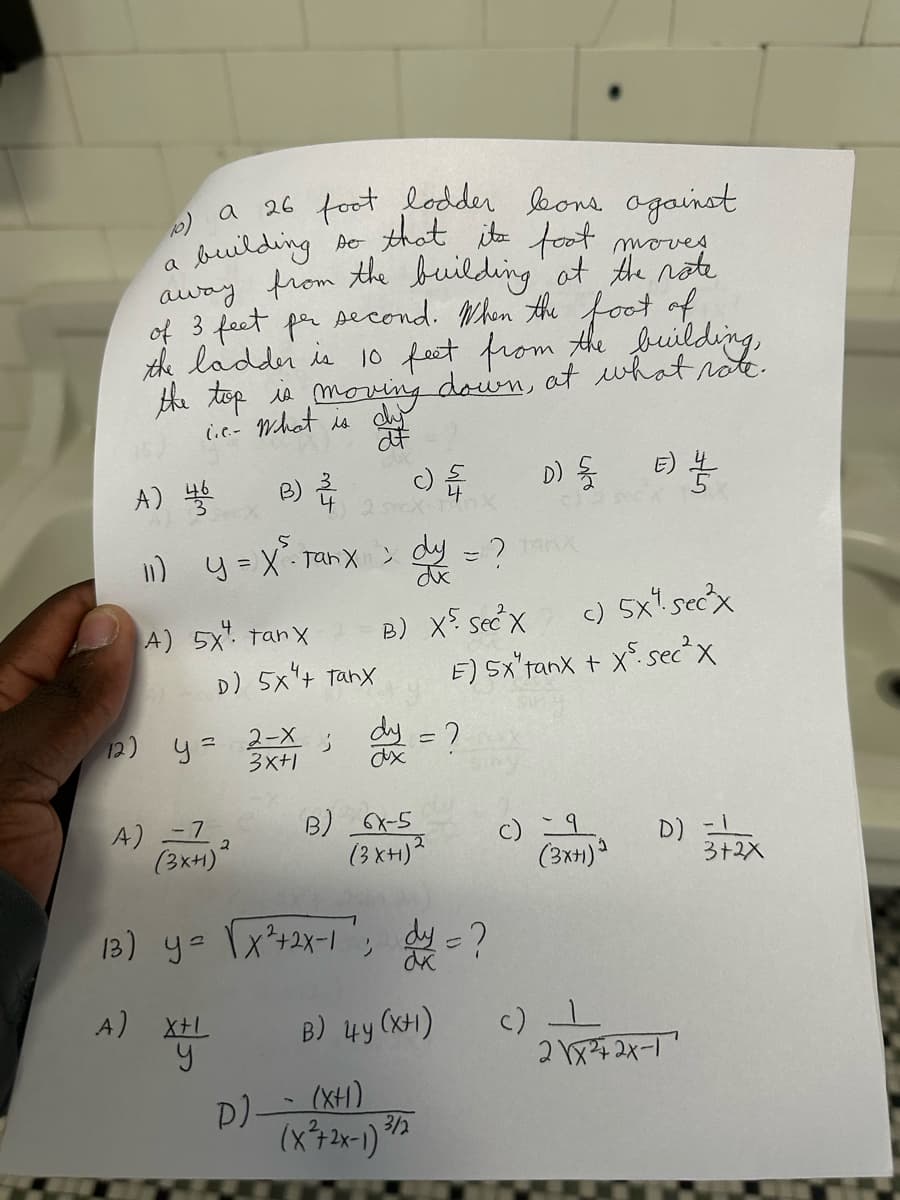 10) a 26 foot ladder leans against
a building so that its foot moves
away from the building at the rate
of 3 feet per second. When the foot of
the ladder is 10 feet from the building,
the top is moving down, at what rate.
i.e.- What is dy/dt
A) 46/3 B) 3/4 C) 5/4 D) 5/2 E) 4/5
11) y = x⁵. Tanx ; dy/dx = ?
A) 5x⁴. tanx B) x⁵. sec²x C) 5x⁴. sec²x
D) 5x⁴+ Tanx E) 5x⁴tanx + x⁵. sec²x
12) y = 2-x/3x+1 ; dy/dx = ?
A) -7/(3x+1)² B) 6x-5/(3x+1)² C) -9/(3x+1)² D) -1/3+2x
13) y = √x²+2x-1 ; dy/dx = ?
A) x+1/y B) 4y(x+1) C) 1/2√x²+2x-1
D) -(x+1)/(x²+2x-1)^3/2